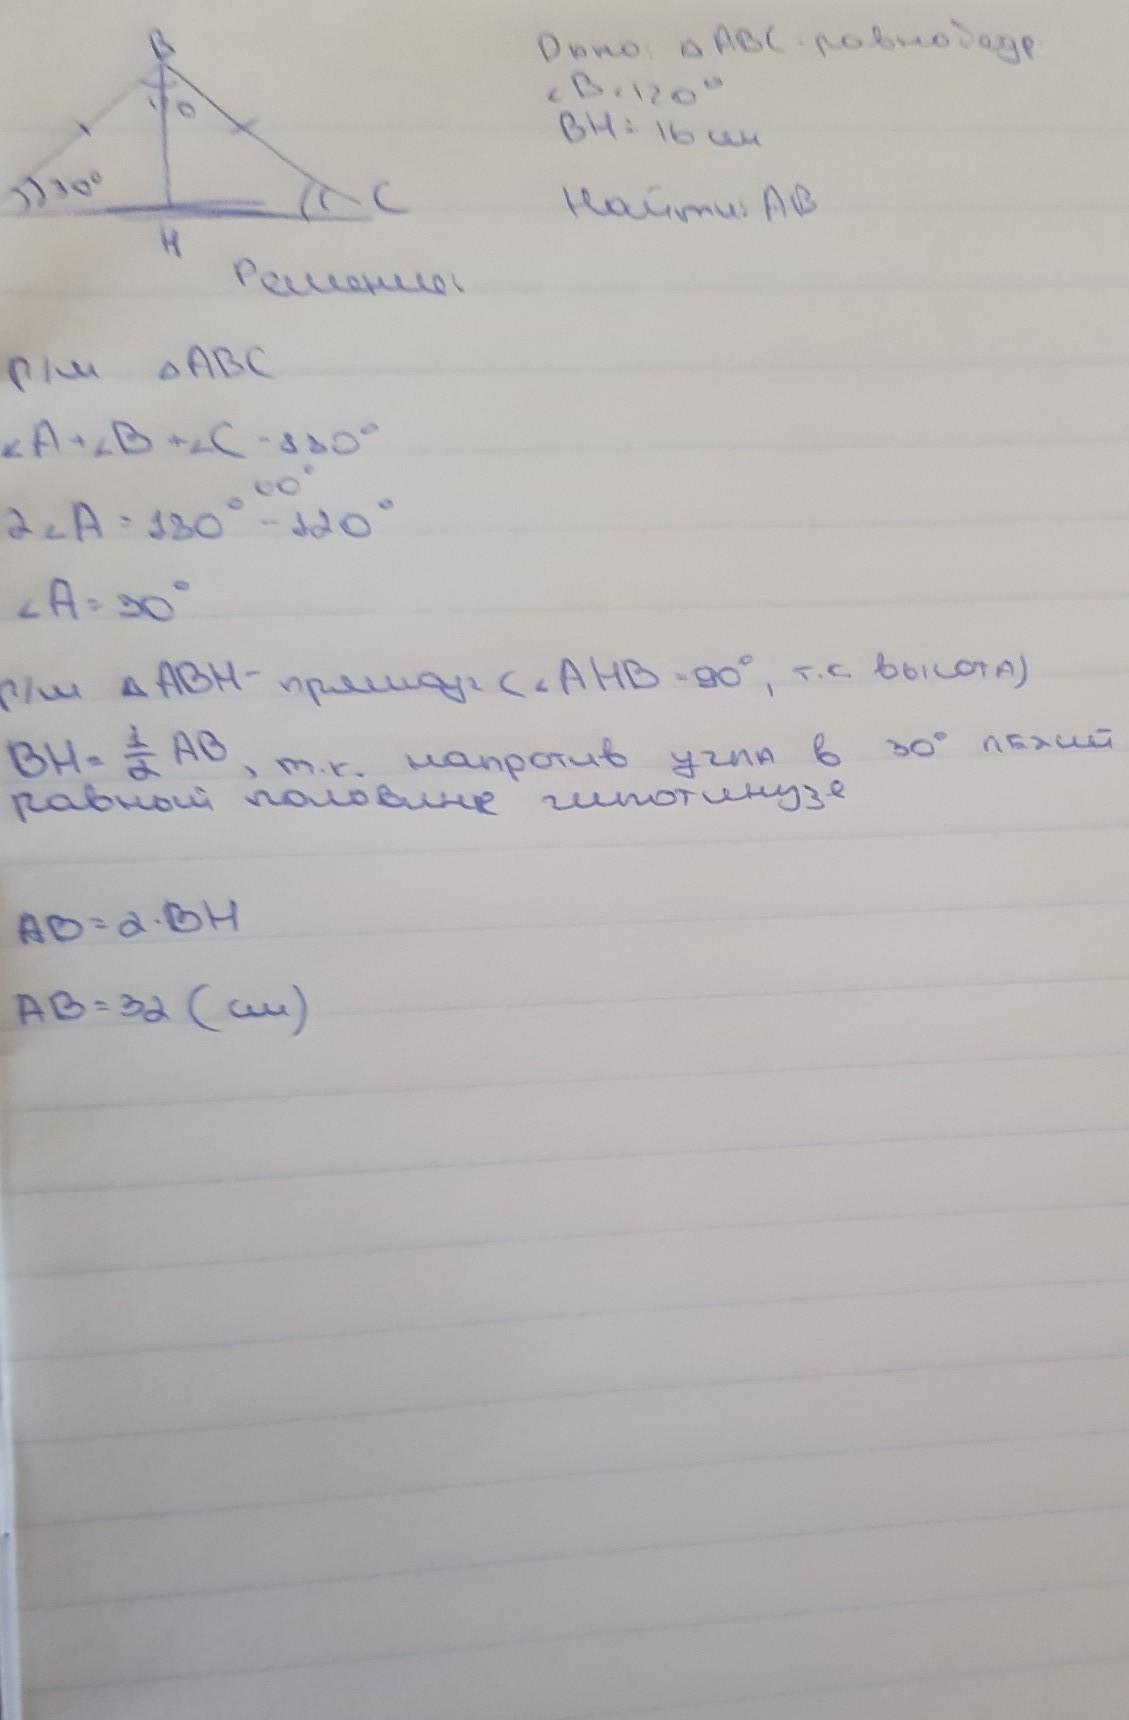 B
0
30°
C
H
Дано: △ABC - равнобедр.
∠B = 120°
BH = 16 см
Найти: AB
Решение:
р/м △ABC
∠A + ∠B + ∠C = 180°
60°
2∠A = 180° - 120°
∠A = 30°
р/м △ABH - прямоуг (∠AHB = 90°, т.к высота)
BH = 1/2 AB, т.к. напротив угла в 30° лежий
равный половине гипотинузе
AB = 2·BH
AB = 32 (см)